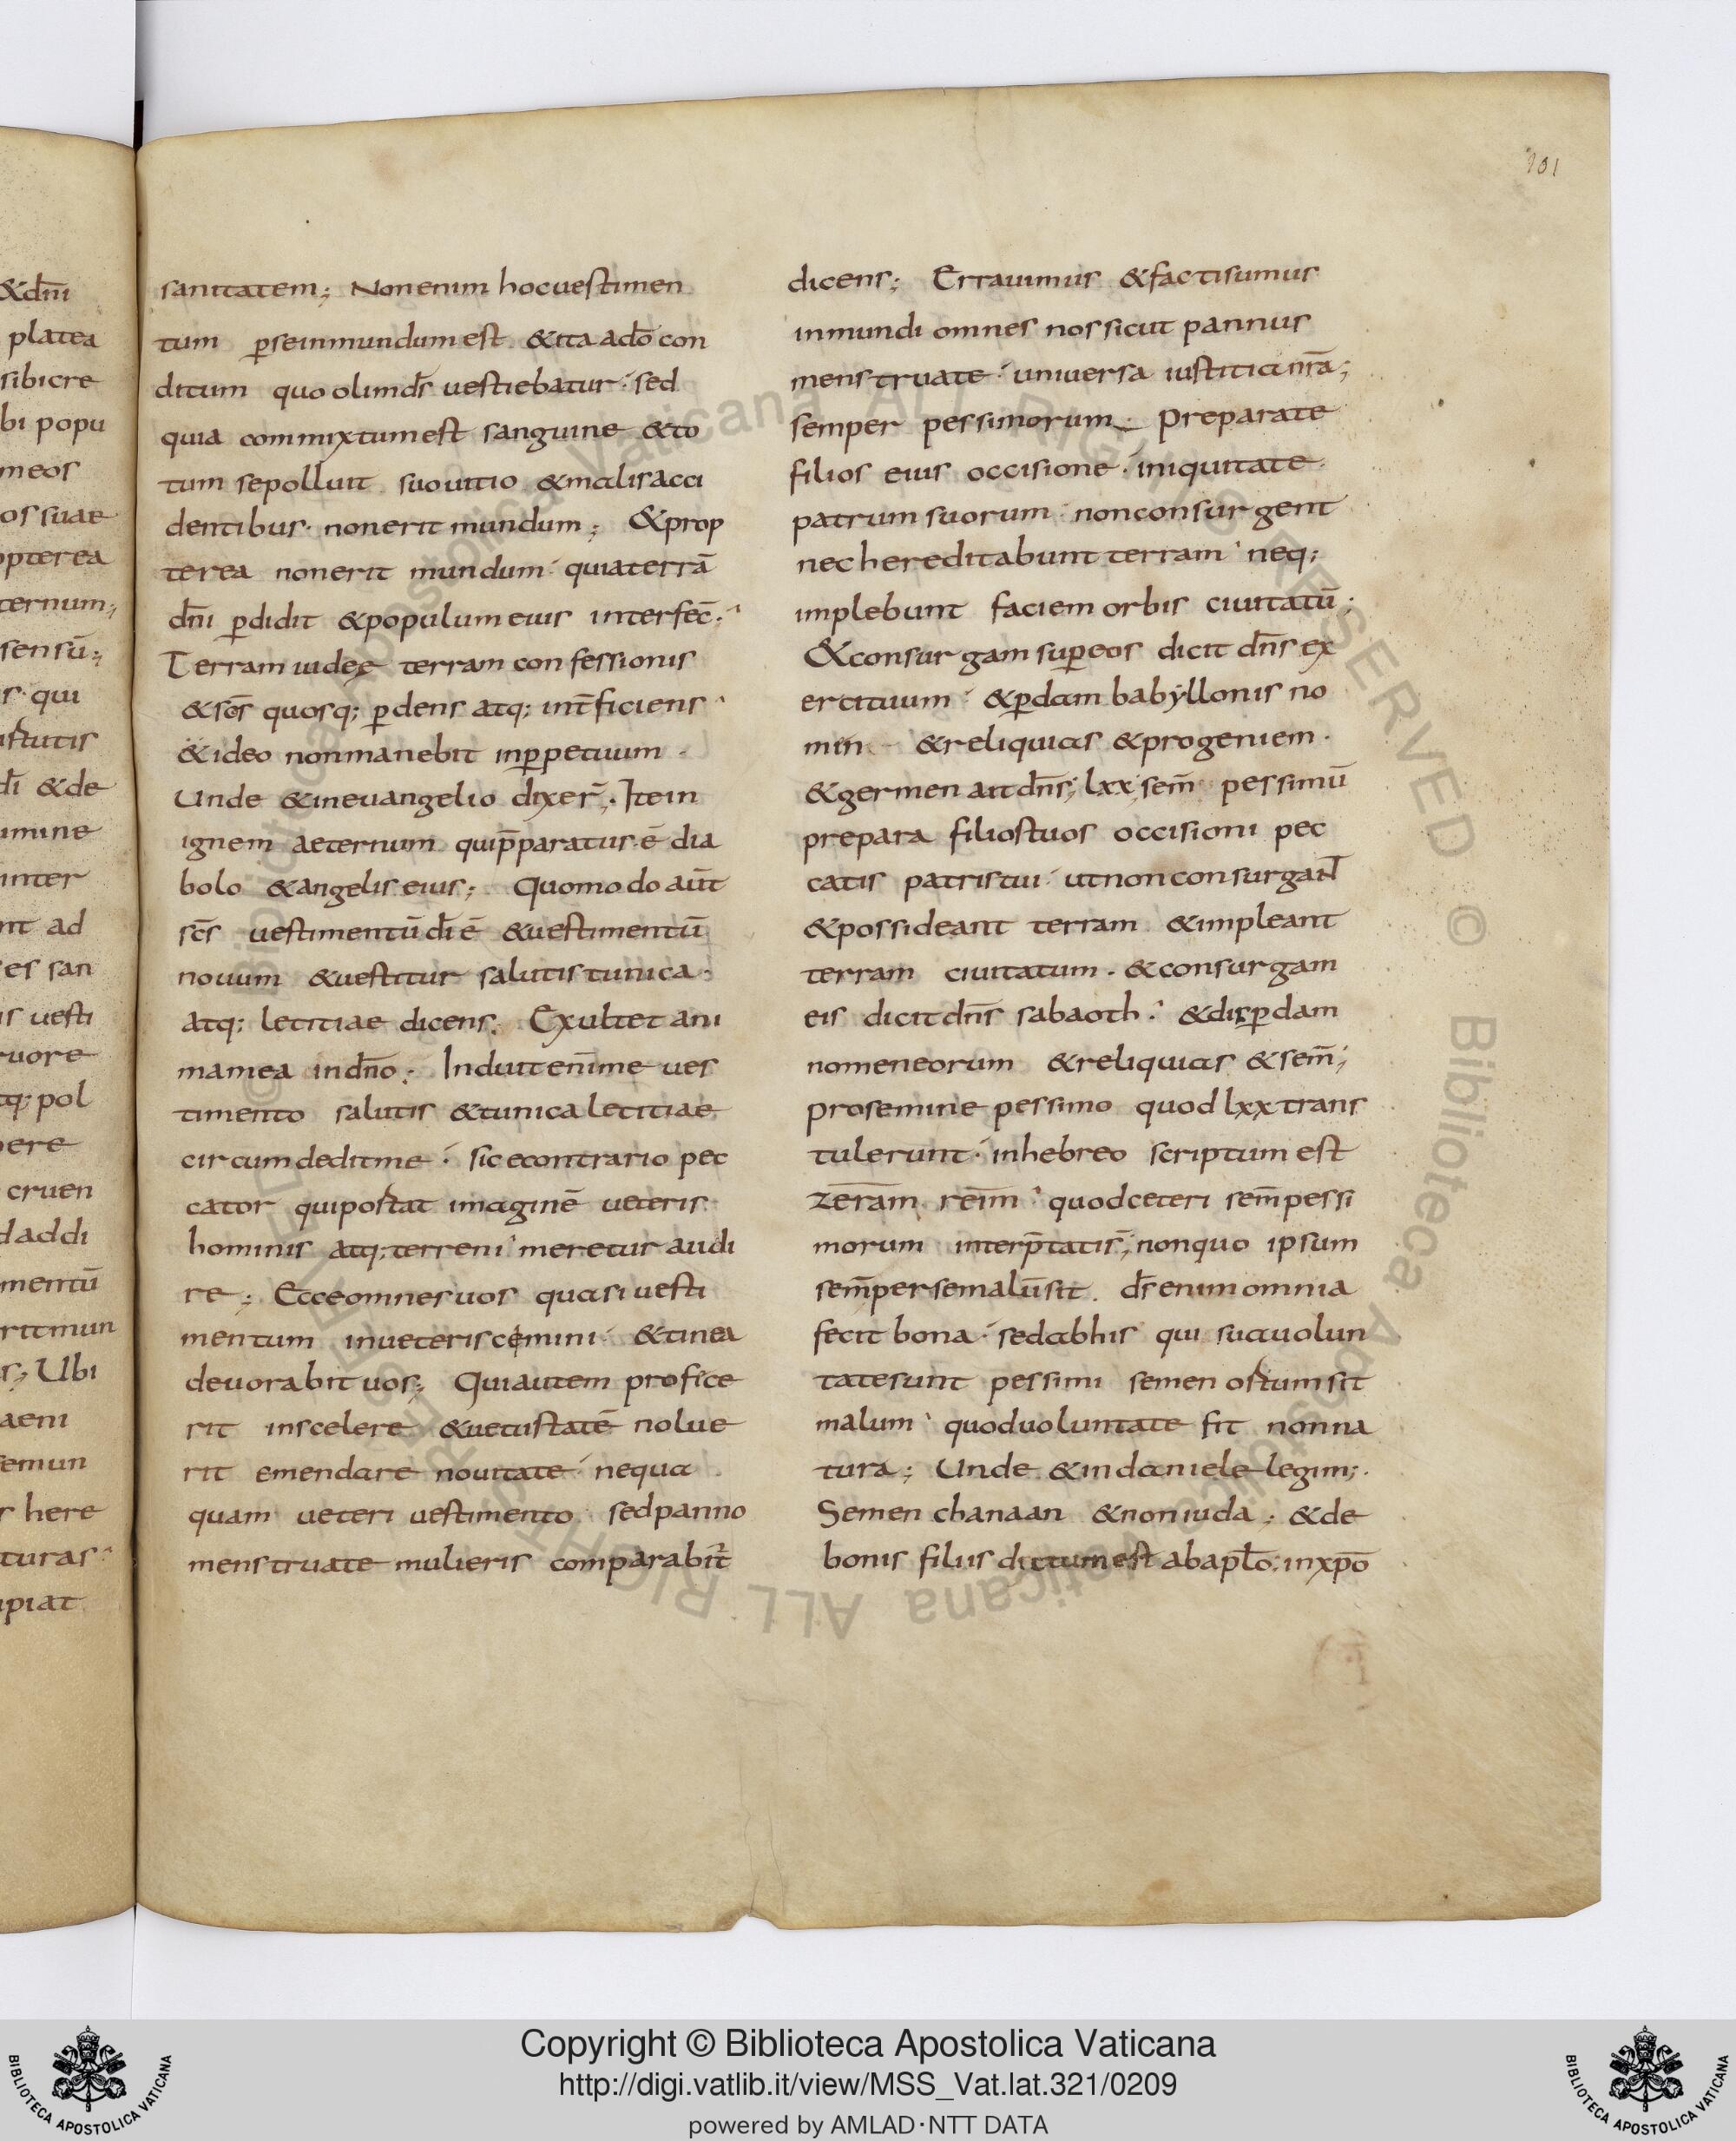 101
&dn̄i
platea
sibicre
bi popu
meos
os suae
opterea
ternum;
sensū;
s. qui
dī &de
umine
inter
nt ad
es san
is uesti
ruore
tq; pol
pere
cruen
daddi
mentū
ritmun
s; Ubi
aeni
femun
r here
turas
ipiat
sanitatem; Nonenim hocuestimen
tum p̱seinmundumest &ita ado̅ con
ditum quo olimds̅ uestiebatur. sed
quia commixtumest sanguine &to
tum sepolluit suouitio &malisacci
dentibus. nonerit mundum; &prop
terea nonerit mundum. quiaterrā
dn̄i p̱didit &populumeius interfec̄.
Terram uidee terram confessionis
&sc̄s quosq; p̱dens atq; int̄ficiens
&ideo nonmanebit inp̱petuum.
Unde &ineuangelio dixer̄. Itein
ignem aeternum quip̄paratus.ē dia
bolo &angelis.eius; Quomodo aūt
sc̄s uestimentū dī ē &uestimentū
nouum &uestitur salutis tunica.
atq; letitiae dicens. Exultet ani
mamea indn̄o; Induitenīme ues
timento salutis &tunica letitiae
circumdeditme. sic econtrario pec
cator quiportat imaginē ueteris
hominis atq; terreni meretur audi
re; Ecceomnesuos quasi uesti
mentum inueteriscemini. &tinea
deuorabit uos; Quiautem profice
rit inscelere &uetustatē nolue
rit emendare nouitate. nequa
quam ueteri uestimento sedpanno
menstruate mulieris comparabit̄
dicens; Errauimus &factisumus
inmundi omnes nos sicut pannus
menstruate. uniuersa iustitia nr̄a;
semper pessimorum. Preparate
filios eius occisione. iniquitate
patrum suorum. nonconsurgent
nec hereditabunt terram. neq;
implebunt faciem orbis ciuitatū;
&consurgam sup̱eos dicit dn̄s ex
ercituum. &p̱dam babyllonis no
min &reliquias &progeniem.
&germen ait dn̄s; lxx sem̄ pessimū
prepara filiostuos occisioni pec
catis patristui. utnonconsurgant
&possideant terram &impleant
terram ciuitatum. &consurgam
eis dicit dn̄s sabaoth. &disp̱dam
nomeneorum &reliquias &sem̄;
prosemine pessimo quod lxx trans
tulerunt. inhebreo scriptum est
zeram reim. quodceteri sem̄pessi
morum interp̄tatis; nonquo ipsum
sem̄persemalūsit. ds̅ enim omnia
fecit bona. sedabhis qui suauolun
tatesunt pessimi semen ostumsit
malum. quoduoluntate fit nonna
tura; Unde &indaniele legim;.
Semen chanaan &noniuda; &de
bonis filiis dictumest abaplo̅; inxpo̅
Copyright © Biblioteca Apostolica Vaticana
http://digi.vatlib.it/view/MSS_Vat.lat.321/0209
powered by AMLAD·NTT DATA
BIBLIOTECA APOSTOLICA VATICANA
BIBLIOTECA APOSTOLICA VATICANA